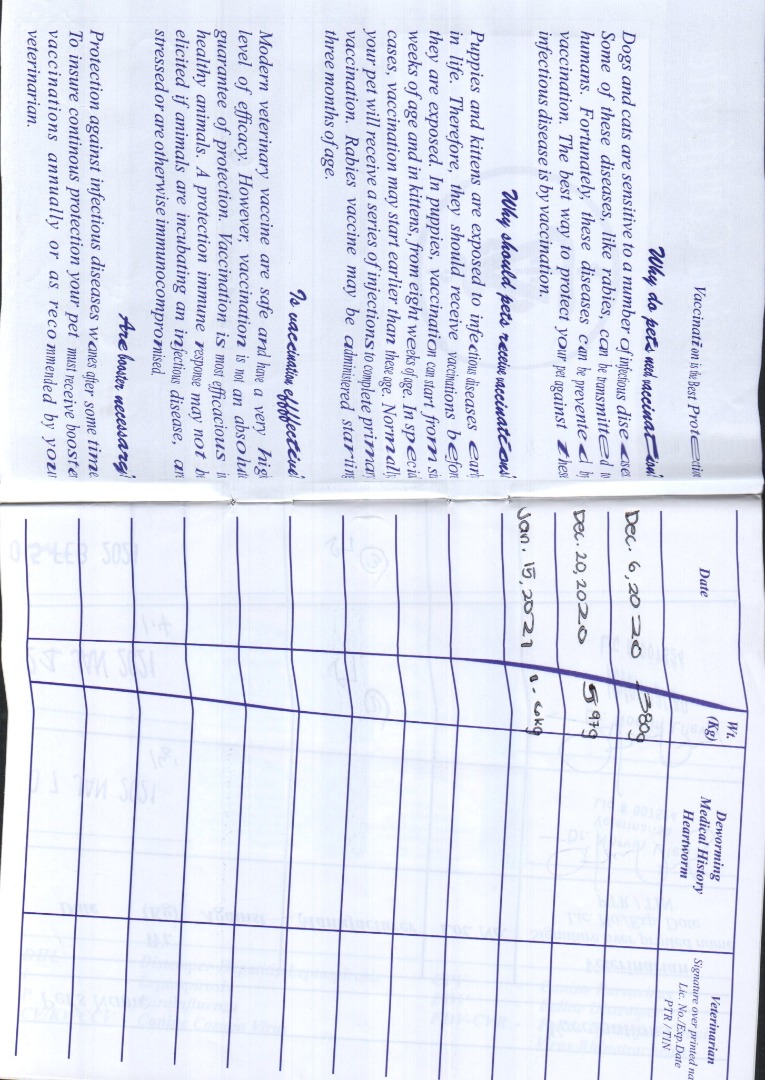 Vaccination is the Best Protection
Why do pets need vaccination?
Dogs and cats are sensitive to a number of infectious diseases
Some of these diseases, like rabies, can be transmitted to
humans. Fortunately, these diseases can be prevented by
vaccination. The best way to protect your pet against these
infectious disease is by vaccination.
Why should pets receive vaccinations?
Puppies and kittens are exposed to infectious diseases early
in life. Therefore, they should receive vaccinations before
they are exposed. In puppies, vaccination can start from six
weeks of age and in kittens, from eight weeks of age. In special
cases, vaccination may start earlier than these age. Normally
your pet will receive a series of injections to complete primary
vaccination. Rabies vaccine may be administered starting
three months of age.
Is vaccination effective?
Modern veterinary vaccine are safe and have a very high
level of efficacy. However, vaccination is not an absolute
guarantee of protection. Vaccination is most efficacious in
healthy animals. A protection immune response may not be
elicited if animals are incubating an infectious disease, are
stressed or are otherwise immunocompromised.
Are booster necessary?
Protection against infectious diseases wanes after some time.
To insure continous protection your pet must receive booster
vaccinations annually or as recommended by your
veterinarian.
Date
Wt.
(Kg)
Deworming
Medical History
Heartworm
Veterinarian
Signature over printed na
Lic. No./Exp.Date
PTR / TIN
Dec. 6, 2020 380g
Dec. 20, 2020 597g
Jan. 15, 2021
05 FEB 2021
21 JAN 2021
07 JAN 2021